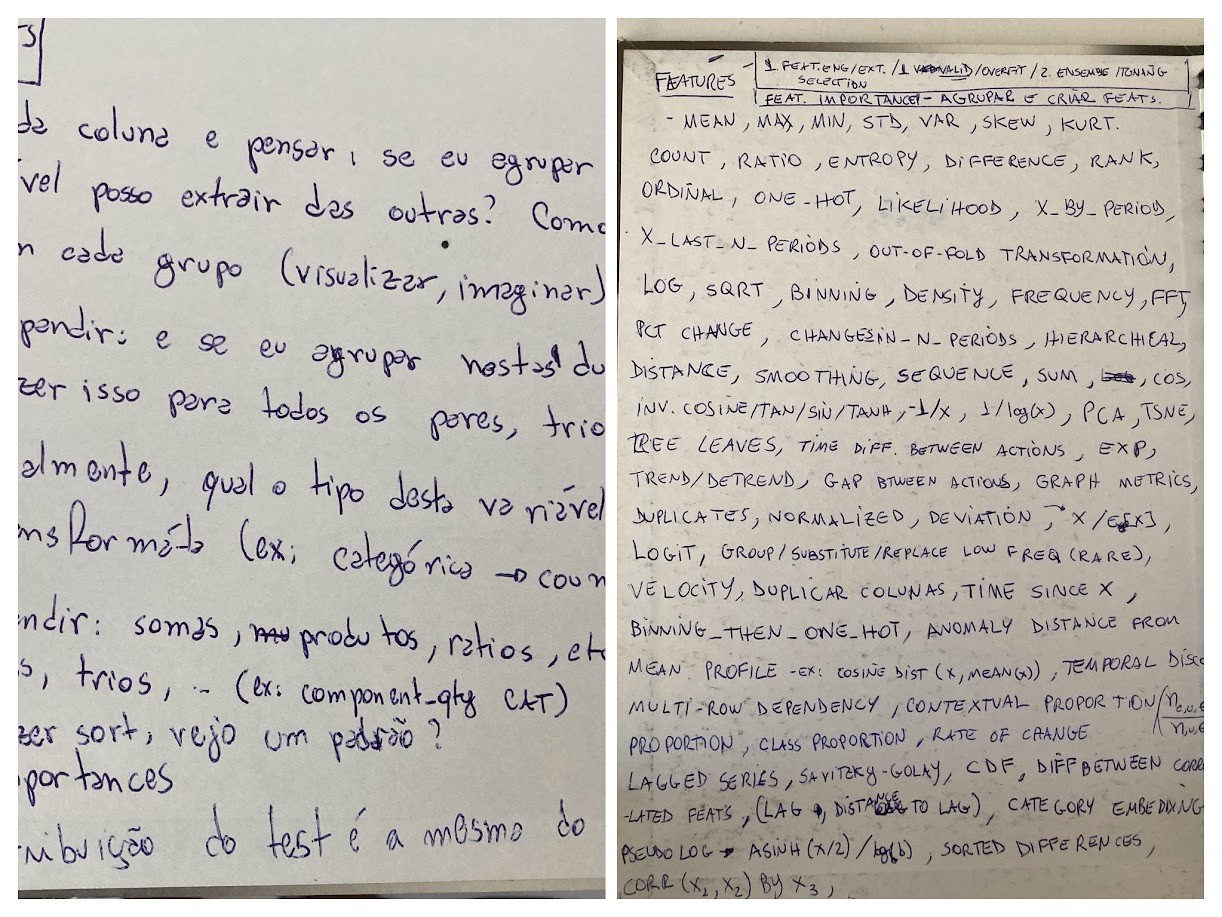 S
da coluna e pensar, se eu agrupar
vel posso extrair das outras? Como
n cada grupo (visualizar, imaginar)
pandir: e se eu agrupar nestas du
zer isso para todos os pares, trio
almente, qual o tipo desta variável
nsformada (ex: categórica → coun
ndir: somas, produtos, ratios, etc
s, trios, .. (ex: component_qty CAT)
zer sort, vejo um padrão?
portances
ribuição do test é a mesma do
FEATURES - 1 FEAT.ENG/EXT. / 1 VALID/OVERFIT / 2. ENSEMBLE /TUNANG
SELECTION
FEAT. IMPORTANCE - AGRUPAR E CRIAR FEATS.
- MEAN, MAX, MIN, STD, VAR, SKEW, KURT.
COUNT, RATIO, ENTROPY, DIFFERENCE, RANK,
ORDINAL, ONE-HOT, LIKELIHOOD, X_BY_PERIOD,
X_LAST_N_PERIODS, OUT-OF-FOLD TRANSFORMATION,
LOG, SQRT, BINNING, DENSITY, FREQUENCY, FFT,
PCT CHANGE, CHANGESIN_N_PERIODS, HIERARCHICAL,
DISTANCE, SMOOTHING, SEQUENCE, SUM, COS,
INV. COSINE/TAN/SIN/TANH, -1/X, 1/log(x), PCA, TSNE,
TREE LEAVES, TIME DIFF. BETWEEN ACTIONS, EXP,
TREND/DETREND, GAP BTWEEN ACTIONS, GRAPH METRICS,
DUPLICATES, NORMALIZED, DEVIATION, X/E[X],
LOGIT, GROUP/SUBSTITUTE/REPLACE LOW FREQ (RARE),
VELOCITY, DUPLICAR COLUNAS, TIME SINCE X,
BINNING_THEN_ONE_HOT, ANOMALY DISTANCE FROM
MEAN PROFILE - EX: COSINE DIST (X, MEAN(X)), TEMPORAL DISC
MULTI-ROW DEPENDENCY, CONTEXTUAL PROPORTION
PROPORTION, CLASS PROPORTION, RATE OF CHANGE
LAGGED SERIES, SAVITZKY-GOLAY, CDF, DIFF BETWEEN CORRE
-LATED FEATS, (LAG, DISTANCE TO LAG), CATEGORY EMBEDDING
PSEUDO LOG → ASINH (X/2) / log(b), SORTED DIFFERENCES,
CORR (X₁, X₂) BY X₃,